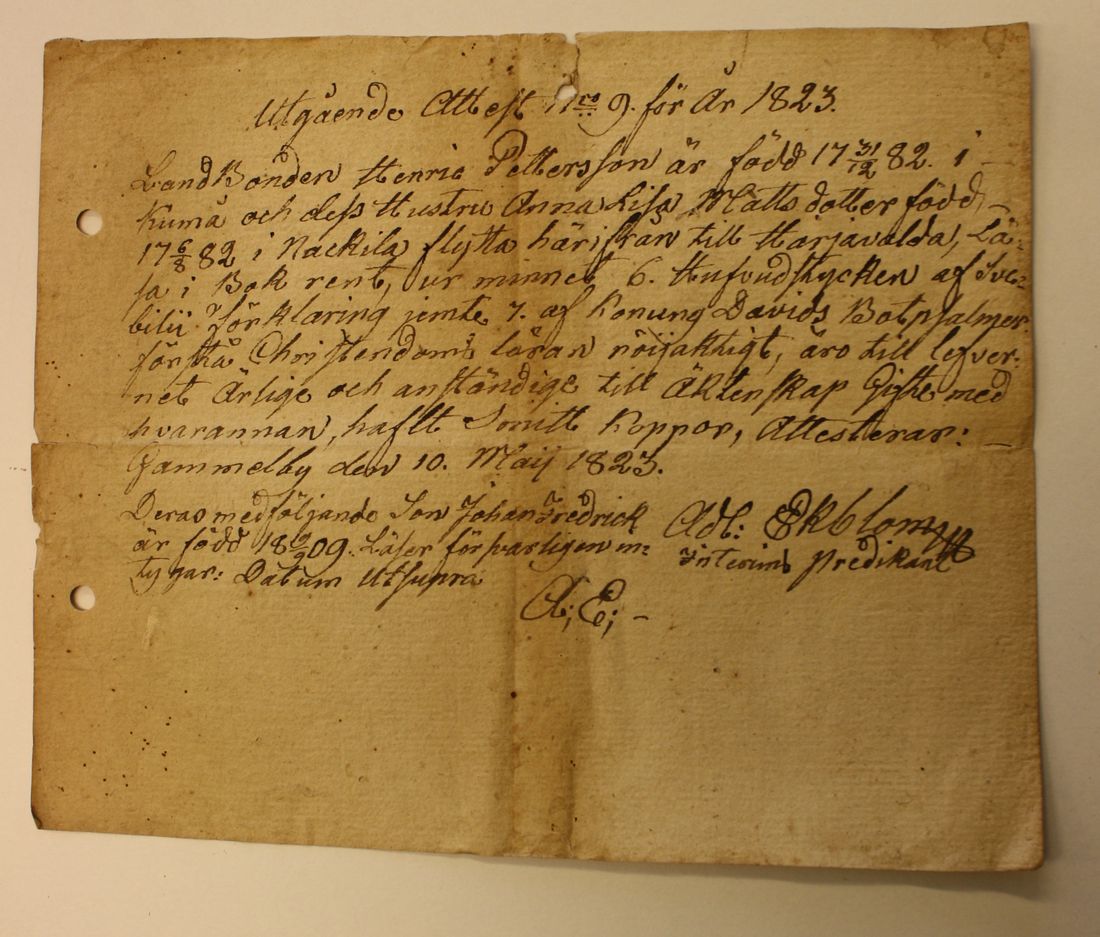 Utgående Attest Nro 9. för År 1823.
Landbonden Henric Pettersson är född 17 31/12 82. i
Kumå och dess Hustru Anna Lisa Matts dotter född
17 6/8 82 i Nackila flytta härifrån till Harjavalda, Lä-
sa i Bok rent, ur minnet 6. Hufvudstycken af Sve-
bilii förklaring jemte 7. af Konung Davids Botpsalmer
förstå Christendoms läran nöijaktigt, äro till lefver-
net Ärlige och anständige till Äktenskap Gifte med
hvarannan, haft Koppor, Attesterar:
Gammelby den 10. Maij 1823.
Deras medföljande Son Johan Fredrick
är född 18 2/2 09. Läser försvarligen in-
tygar: Datum Utsupra
A; E; -
Adl: Ekblom
Interims predikant